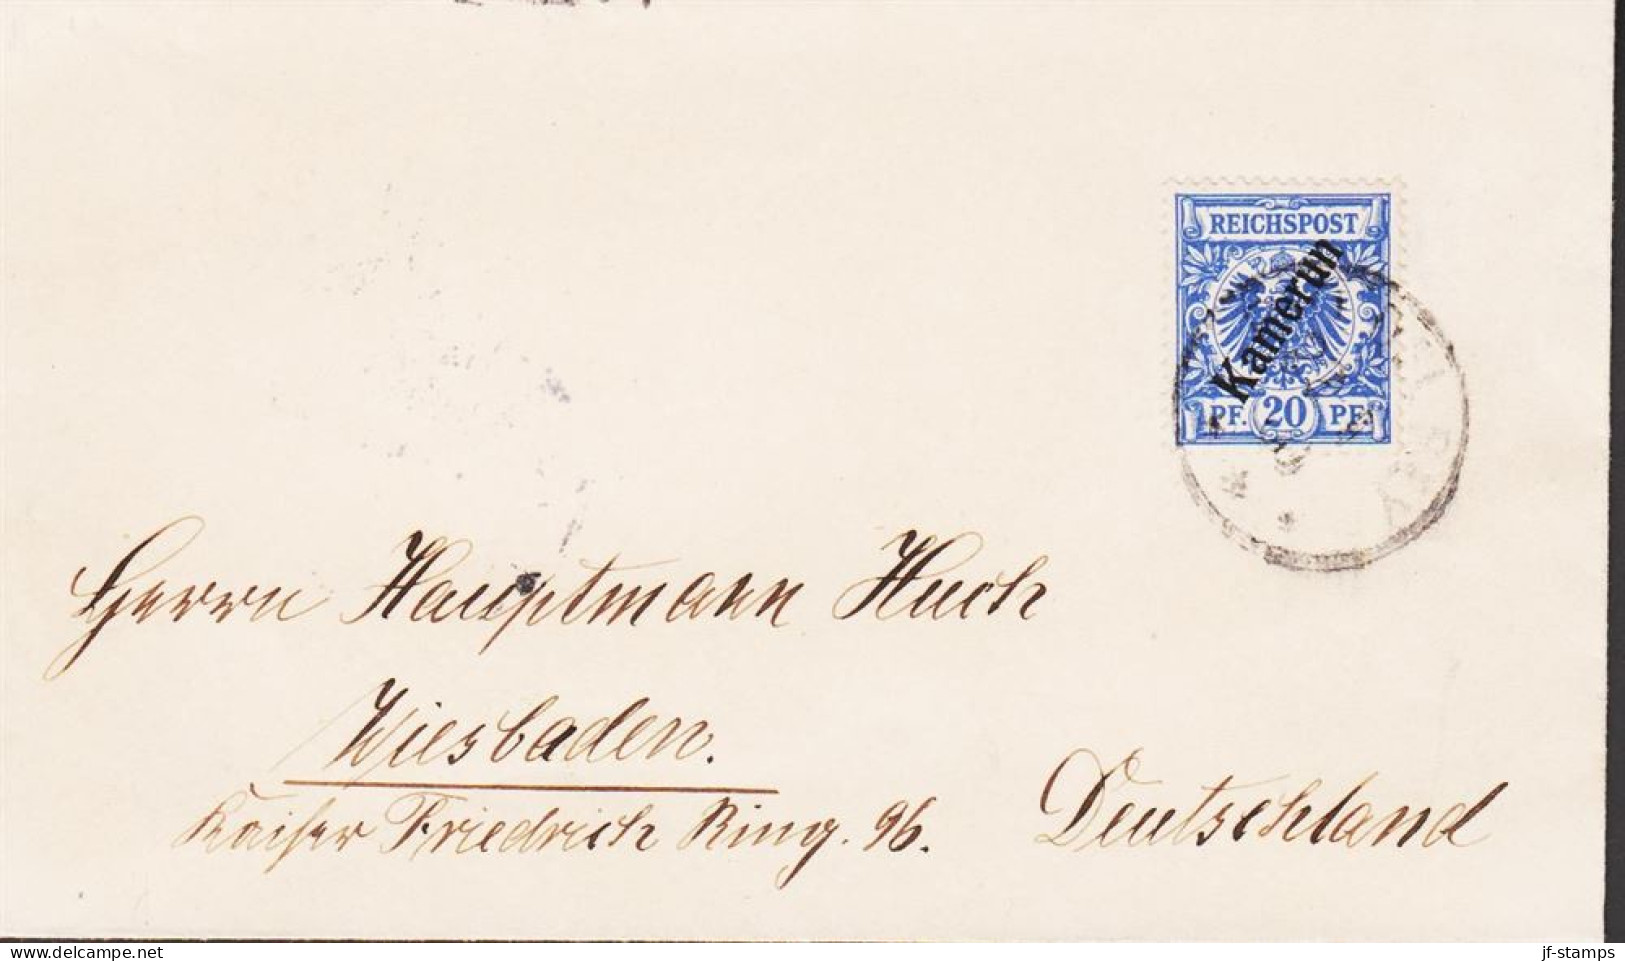 REICHSPOST
Kamerun
PF. 20 PF.
Herrn Hauptmann Huch
Wiesbaden.
Kaiser Friedrich Ring. 96.
Deutschland
delcampe.net
jf-stamps